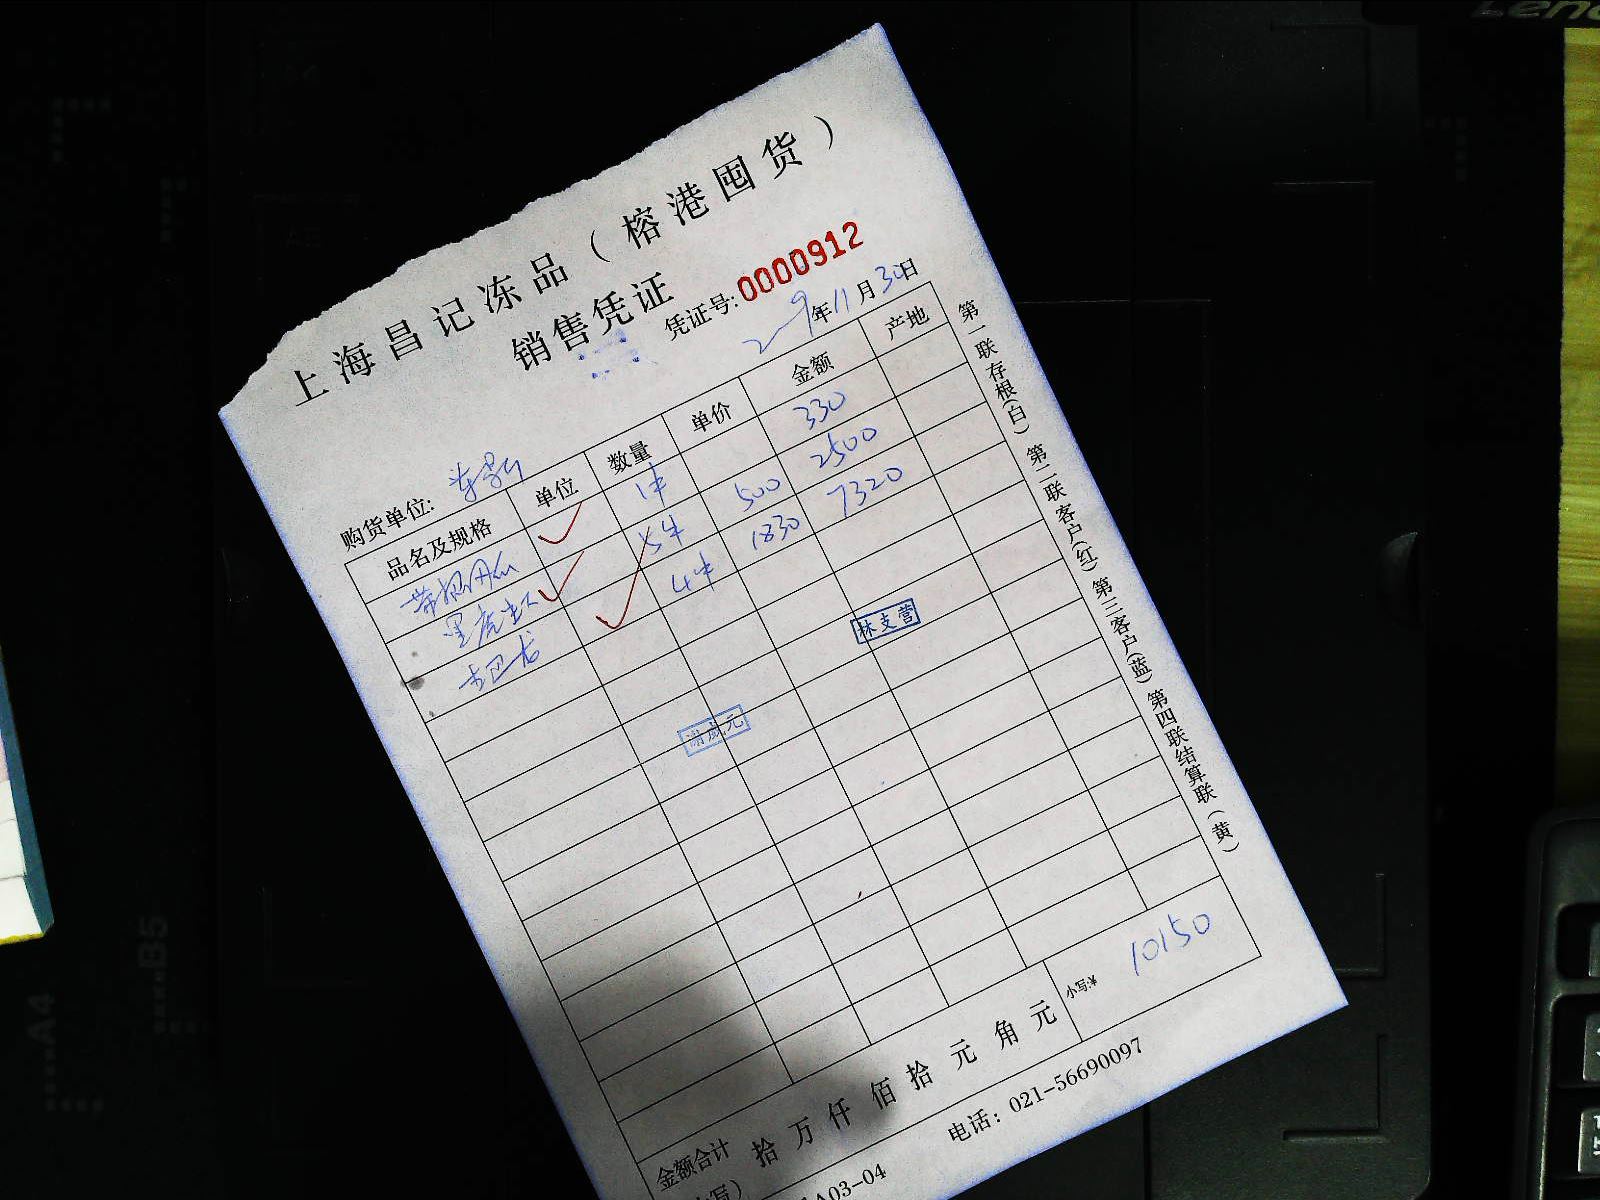 上海昌记冻品（榕港囤货）
销售凭证
凭证号: 0000912
年11月30日
购货单位:
品名及规格 单位 数量 单价 金额 产地
1件 330
黑虎 5件 500 2500
4件 1830 7320
林支营
谢成元
金额合计 拾 万 仟 佰 拾 元 角 元 小写:¥ 10150
写）
电话：021-56690097
A03-04
第一联存根(白) 第二联客户(红) 第三客户(蓝) 第四联结算联（黄）
Leno
A4
B5